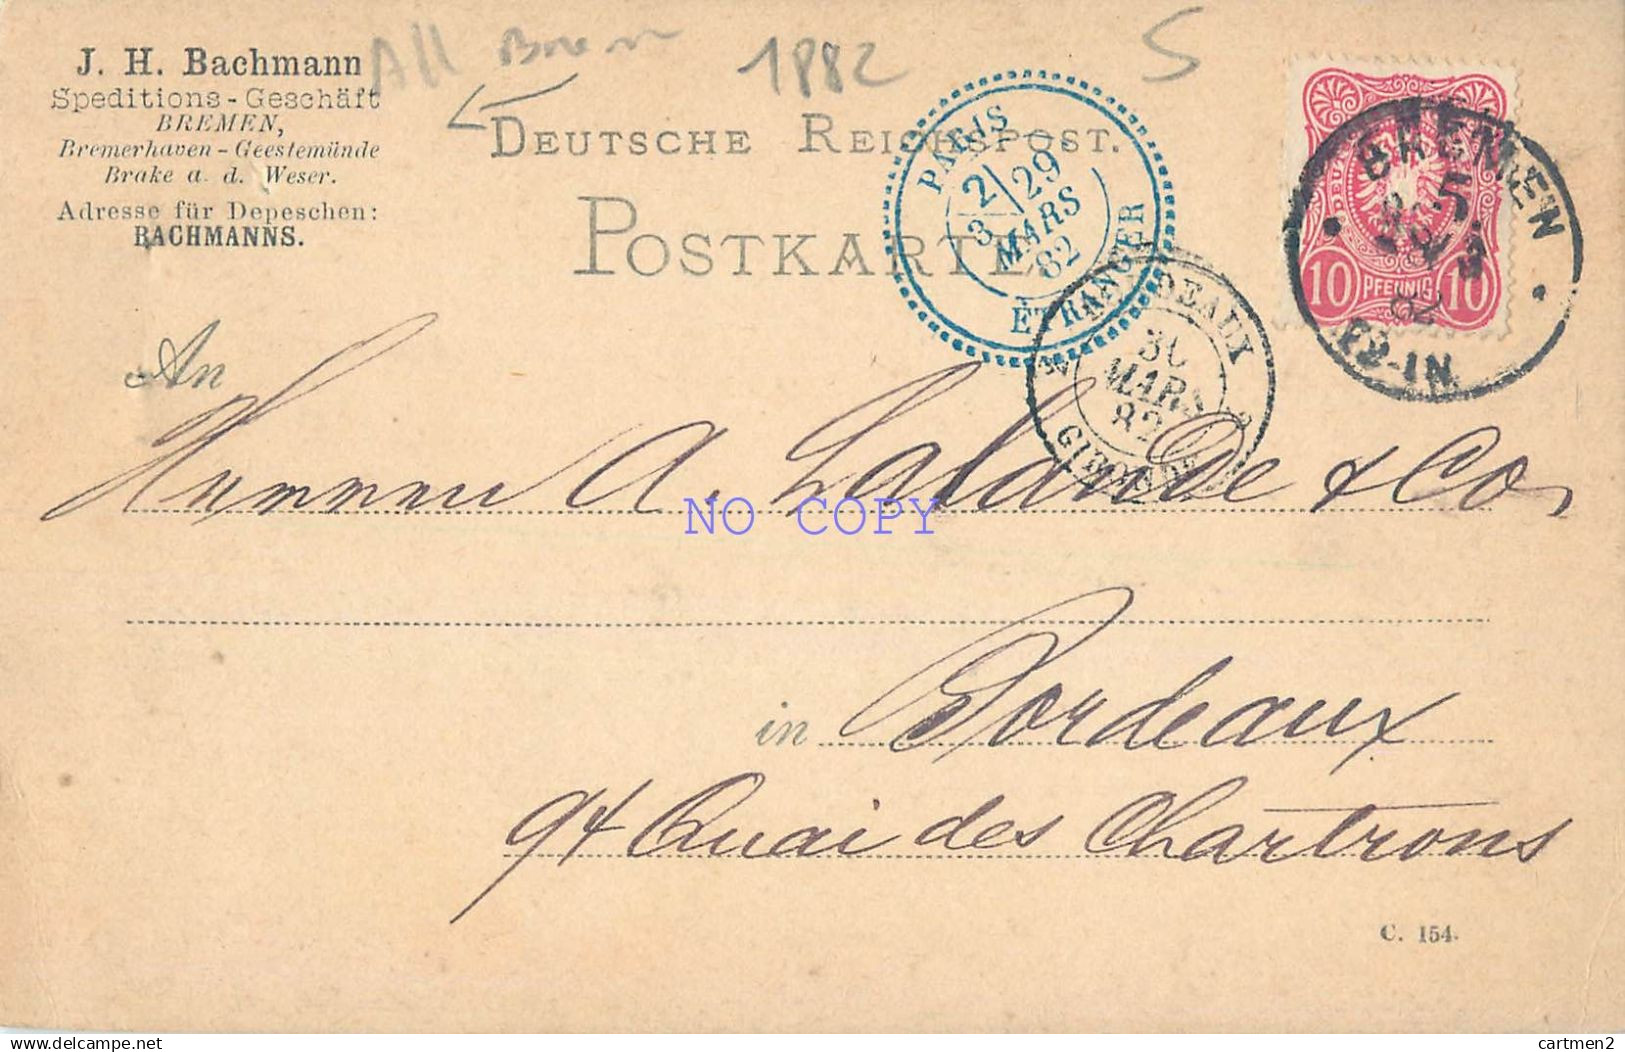 All Brem
1882
S
J. H. Bachmann
Speditions-Geschäft
BREMEN,
Bremerhaven-Geestemünde
Brake a. d. Weser.
Adresse für Depeschen:
BACHMANNS.
DEUTSCHE REICHSPOST.
POSTKARTE
PARIS
2
3
29
MARS
82
ÉTRANGER
BORDEAUX
30
MARS
82
GIRONDE
BREMEN
82
10 PFENNIG 10
An
Herren A. Lalande & Co,
NO COPY
in Bordeaux
94 Quai des Chartrons
C. 154.
delcampe.net
cartmen2